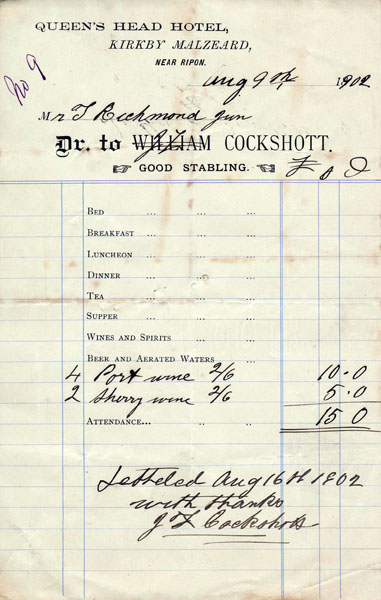 QUEEN'S HEAD HOTEL,
KIRKBY MALZEARD,
NEAR RIPON.
No 9
Aug 9th 1902
Mr T Richmond Jun
Dr. to WILLIAM COCKSHOTT.
GOOD STABLING.
£ s D
BED ... ... ...
BREAKFAST ... ... ...
LUNCHEON ... ... ...
DINNER ... ... ...
TEA ... ... ...
SUPPER ... ... ...
WINES AND SPIRITS ... ...
BEER AND AERATED WATERS ...
4 Port wine 2/6 10.0
2 Sherry wine 2/6 5.0
ATTENDANCE... .. .. 15 0
Setteled Aug 16th 1902
with thanks
J T Cockshott